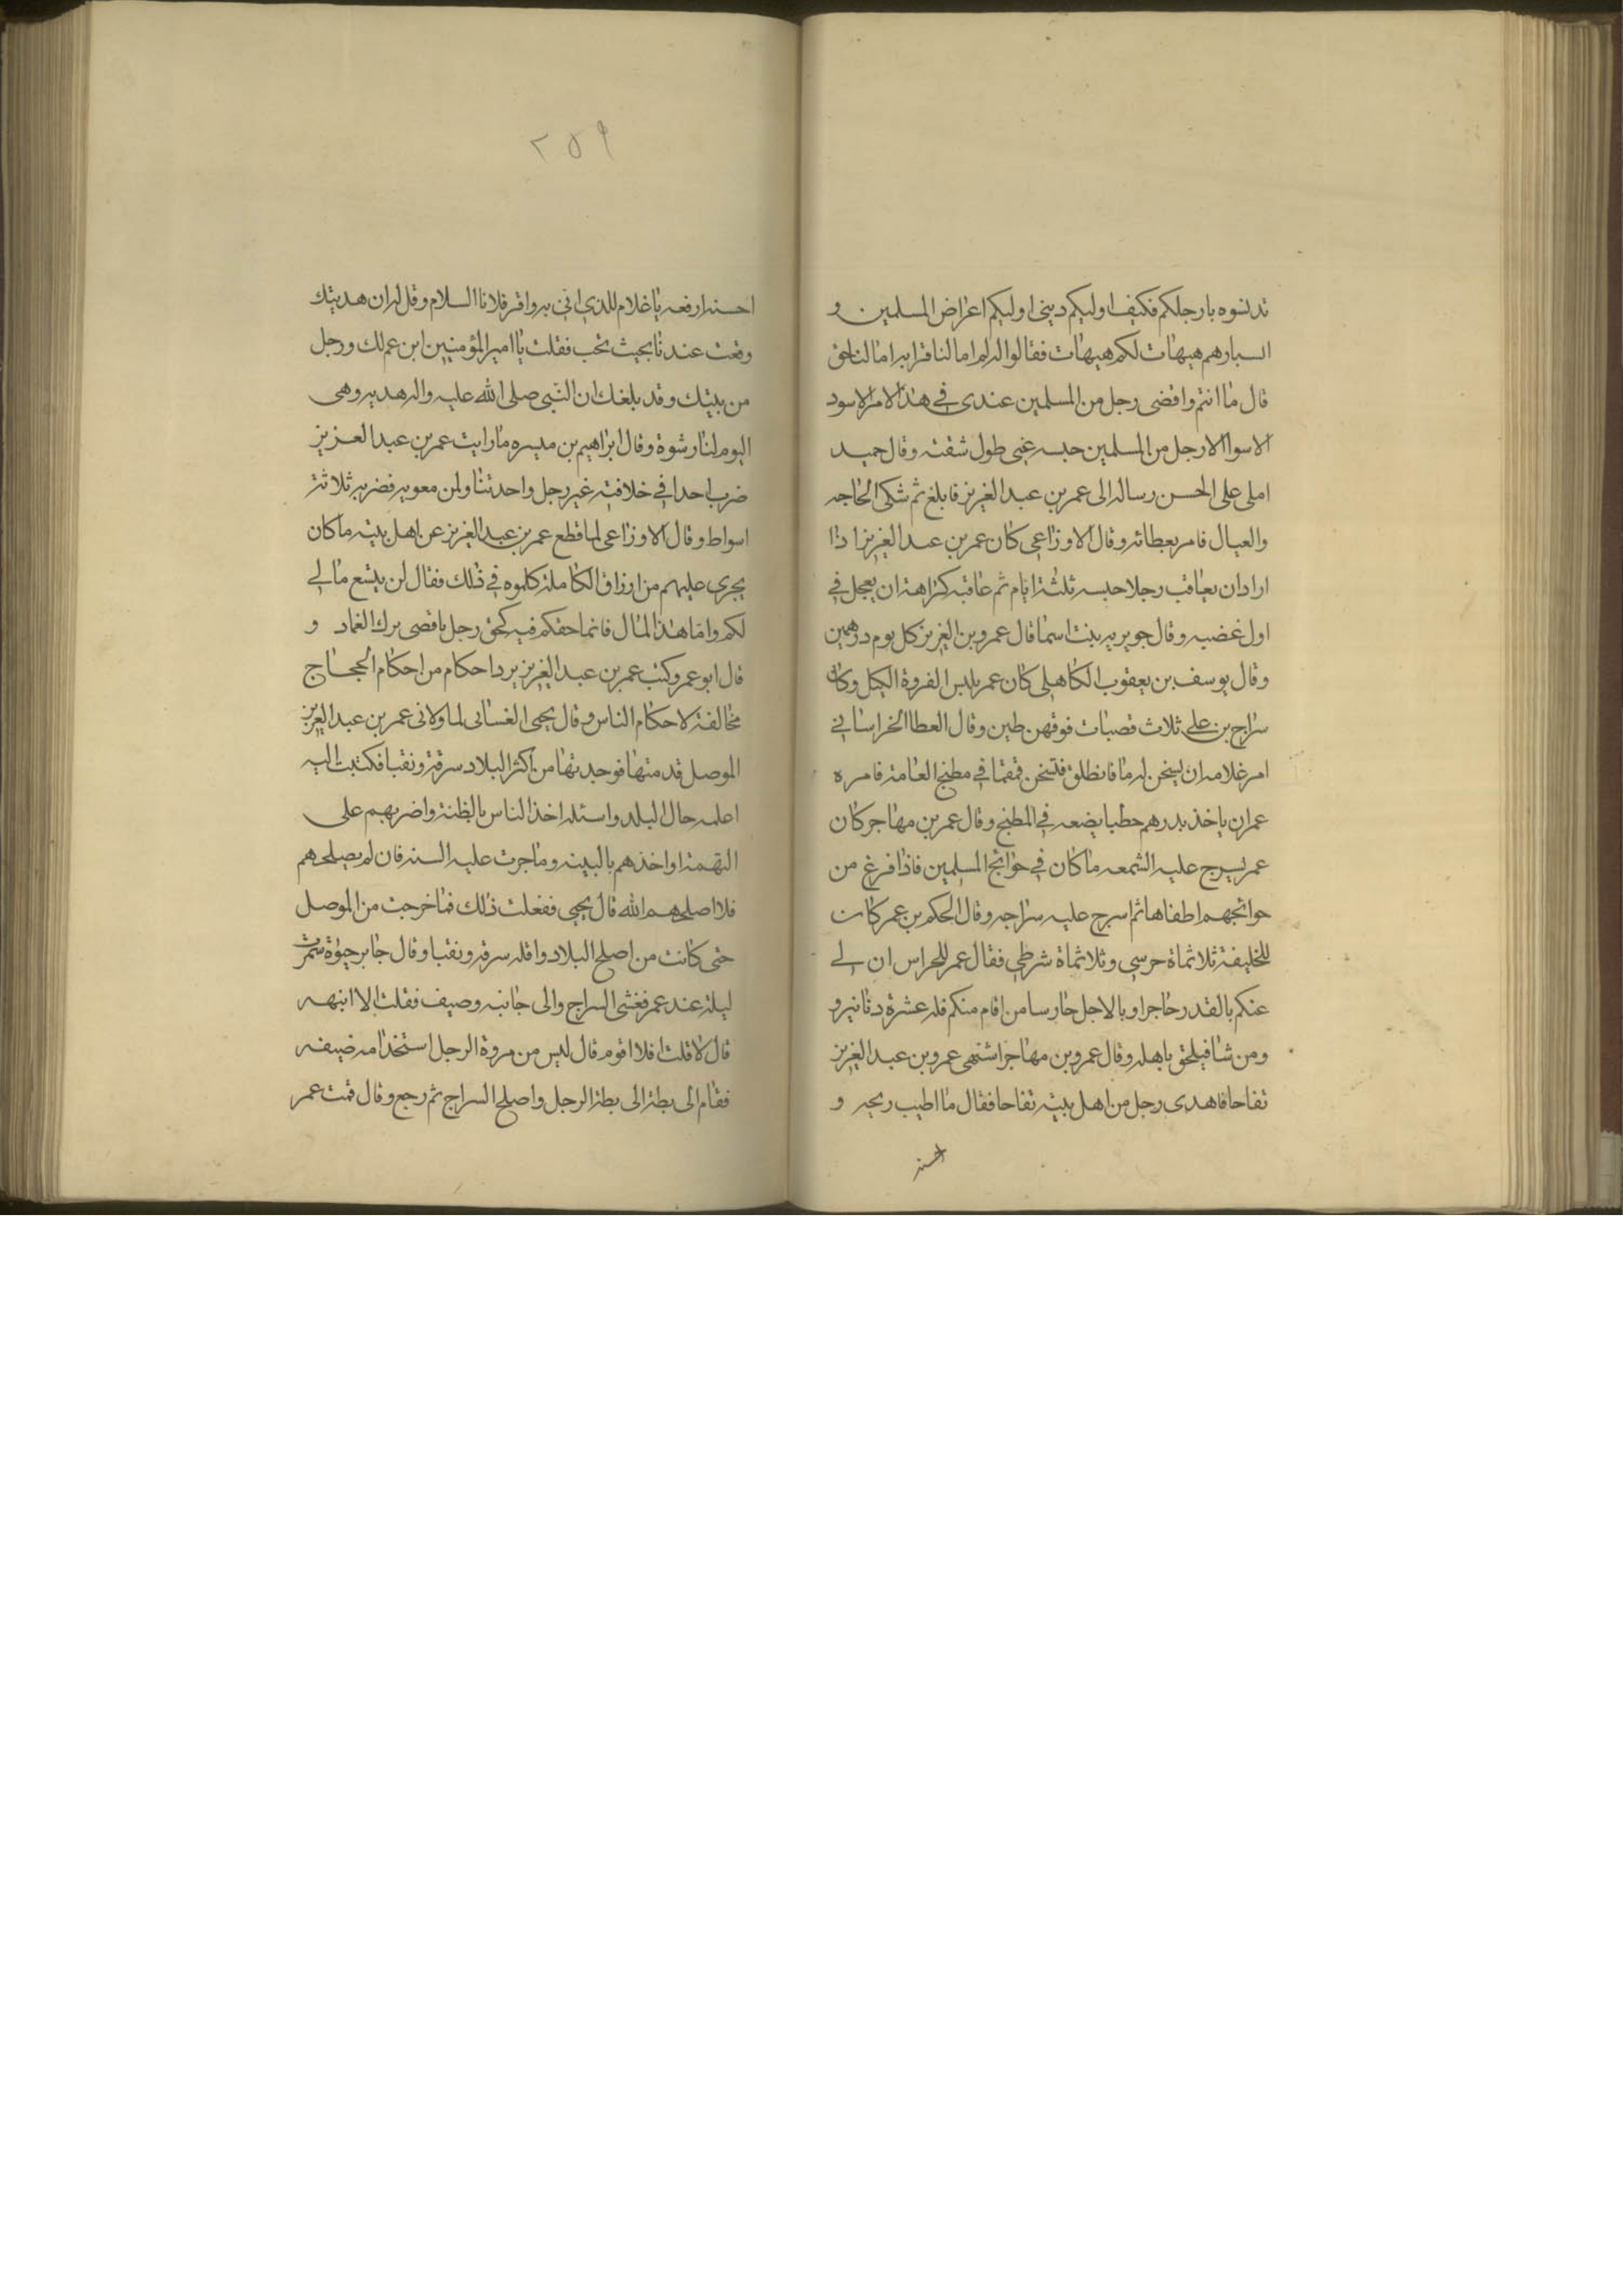 تدنسوه بارجلكم فكيف اوليكم دينى اوليكم اعراض المسلمين و
ابشارهم هيهات لكم هيهات فقالوا له لم اما لنا قرابه اما لنا حق
قال ما انتم واقضى رجل من المسلمين عندى فى هذا الامر الا سود
الا سوا الا رجل من المسلمين حبسه عنى طول شقته وقال حميد
املى على الحسن رساله الى عمر بن عبد العزيز فابلغ ثم شكى الحاجه
والعيال فامر بعطائه وقال الاوزاعى كان عمر بن عبد العزيز اذا
اراد ان يعاقب رجلا حبسه ثلثة ايام ثم عاقبه كراهة ان يعجل فى
اول غضبه وقال جويريه بنت اسما قال عمرو بن العزيز كل يوم درهمين
وقال يوسف بن يعقوب الكاهلى كان عمر يلبس الفروة الكبل وكان
سراج بن على ثلاث قصبات فوقهن طين وقال العطا الخراسانى
امر غلامه ان يسخن له ما فانطلق فتسخن قمقما فى مطبخ العامة فامره
عمر ان ياخذ بدرهم حطبا يضعه فى المطبخ وقال عمر بن مهاجر كان
عمر يسرج عليه الشمعه ما كان فى حوائج المسلمين فاذا فرغ من
حوائجهم اطفاها ثم اسرج عليه سراجه وقال الحكم بن عمر كان
للخليفة ثلاثماة حرسى وثلاثماة شرطى فقال عمر للحراس ان لى
عنكم بالقدر حاجرا وبالاجل حارسا من اقام منكم فله عشرة دنانير و
ومن شا فيلحق باهله وقال عمرو بن مهاجر اشتهى عمرو بن عبد العزيز
تفاحا فاهدى رجل من اهل بيته تفاحا فقال ما اطيب ريحه و
احسنه
٢٥٩
احسنه ارفعه يا غلام للذى اتى به واقر فلانا السلام وقل له ان هديتك
وقعت عندنا بحيث تحب فقلت يا امير المؤمنين ابن عم لك ورجل
من بيتك وقد بلغك ان النبى صلى الله عليه واله هديه وهى
اليوم لنا رشوة وقال ابراهيم بن ميسره ما رايت عمر بن عبد العزيز
ضرب احدا فى خلافته غير رجل واحد تناول من معويه فضربه ثلاثة
اسواط وقال الاوزاعى لما قطع عمر بن عبد العزيز عن اهل بيته ما كان
يجرى عليهم من ارزاق الكاملة كلموه فى ذلك فقال لن يتسع مالى
لكم واما هذا المال فانما حقكم فيه كحق رجل باقصى برك الغماد و
قال ابو عمر وكتب عمر بن عبد العزيز يرد احكام من احكام الحجاج
مخالفة لاحكام الناس وقال يحيى الغسانى لما ولانى عمر بن عبد العزيز
الموصل قدمتها فوجدتها من اكثر البلاد سرقة ونقبا فكتبت اليه
اعلمه حال البلد واسئله اخذ الناس بالظنة واضربهم على
التهمة او اخذهم بالبينه وما جرت عليه السنه فان لم يصلحهم
فلا اصلحهم الله قال يحيى ففعلت ذلك فما خرجت من الموصل
حتى كانت من اصلح البلاد واقله سرقه ونقبا وقال جابر حيوة سمرت
ليلة عند عمر فغشى السراج والى جانبه وصيف فقلت الا انبهه
قال لا قلت افلا اقوم قال ليس من مروة الرجل استخدامه ضيفه
فقام الى بطة الى بطة الرجل واصلح السراج ثم رجع وقال قمت عمر